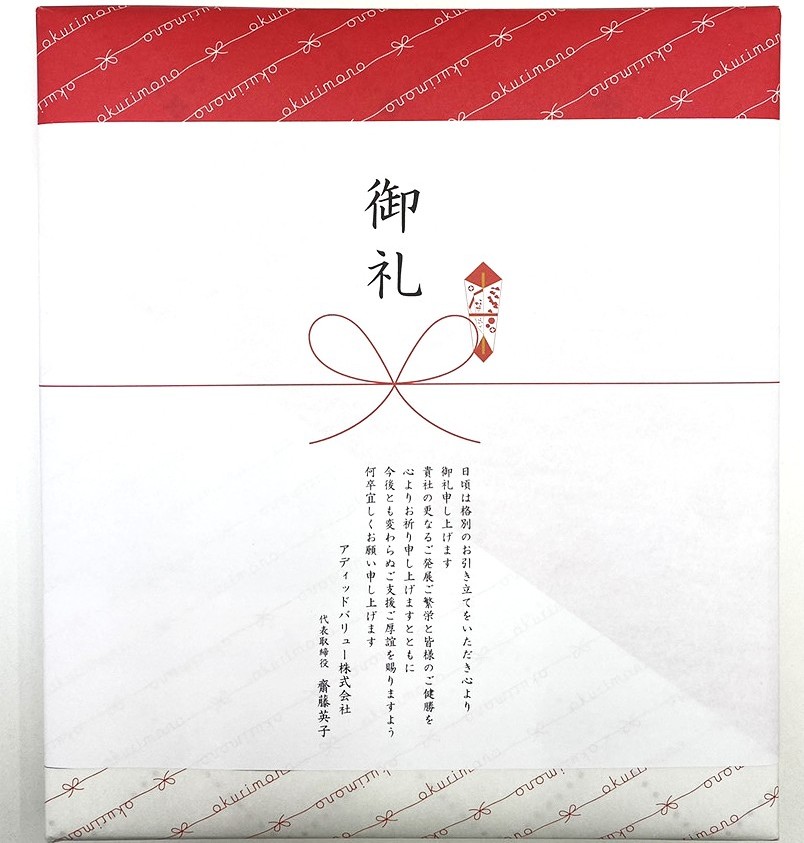 御礼
日頃は格別のお引き立てをいただき心より
御礼申し上げます
貴社の更なるご発展ご繁栄と皆様のご健勝を
心よりお祈り申し上げますとともに
今後とも変わらぬご支援ご厚誼を賜りますよう
何卒宜しくお願い申し上げます
アディッドバリュー株式会社
代表取締役 齋藤英子
okurimono